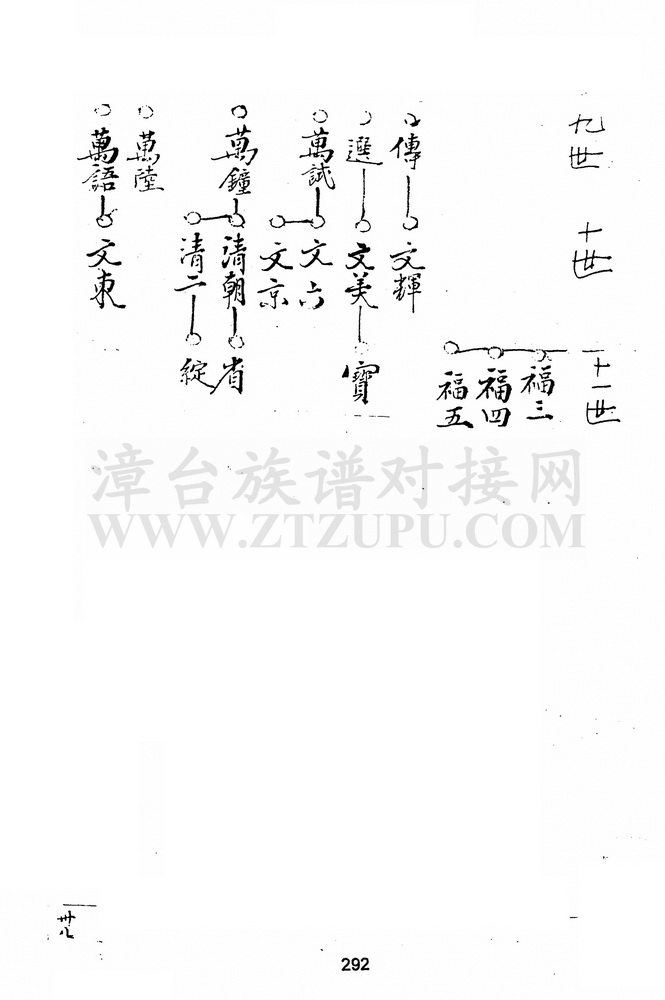 九世
十世
十一世
福三
福四
福五
傳
文輝
選
文美
寶
萬試
文六
文京
萬鐘
清朝
省
清二
綻
萬陸
萬語
文東
漳台族谱对接网
WWW.ZTZUPU.COM
卅八
292